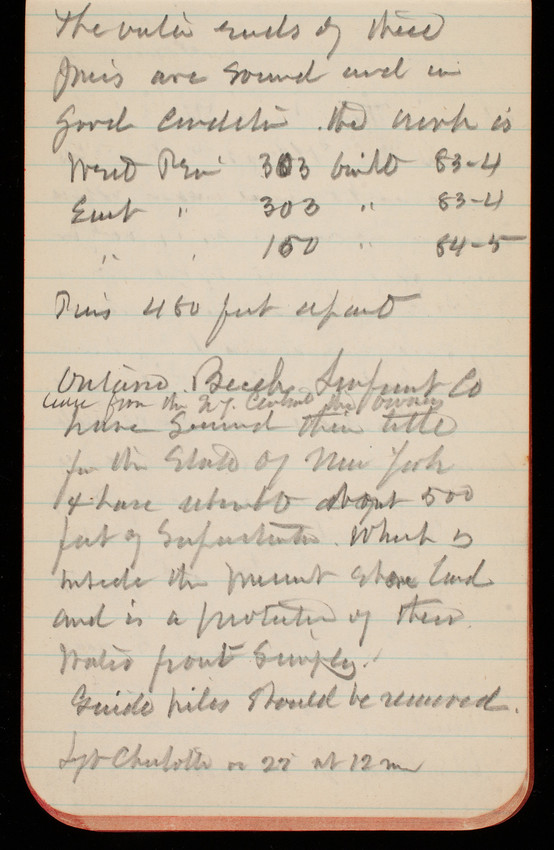 The outer ends of these
Piers are sound and in
good condition. The work is
West Pier 303 built 83-4
East " 303 " 83-4
" " 150 " 84-5
Piers 480 feet apart
Ontario Beech Improvmt Co
lease from the N.Y. Central the owners
have secured their title
fr the State of New York
& have rebuilt about 500
feet of Superstructure. Which is
inside the present shore land
and is a protection of their
Water front simply.
Guide piles should be removed.
Left Charlotte on 22 at 12 m